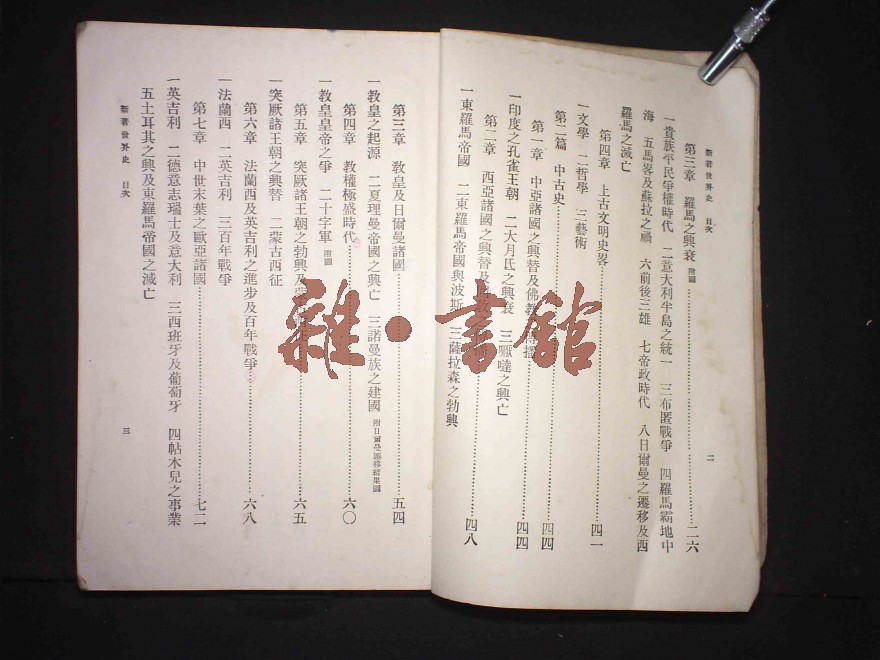 新著世界史 目次
二
第三章 羅馬之興衰 附圖 二六
一貴族平民爭權時代 二意大利半島之統一 三布匿戰爭 四羅馬霸地中
海 五馬畧及蘇拉之禍 六前後三雄 七帝政時代 八日爾曼之遷移及西
羅馬之滅亡
第四章 上古文明史畧 四一
一文學 二哲學 三藝術
第二篇 中古史 四四
第一章 中亞諸國之興替及佛教 播 四四
一印度之孔雀王朝 二大月氏之興衰 三嚈噠之興亡
第二章 西亞諸國之興替及 四八
一東羅馬帝國 二東羅馬帝國與波斯 三薩拉森之勃興
第三章 教皇及日爾曼諸國 五四
一教皇之起源 二夏理曼帝國之興亡 三諾曼族之建國 附日爾曼遷移結果圖
第四章 教權極盛時代 六〇
一教皇皇帝之爭 二十字軍 附圖
第五章 突厥諸王朝之勃興及 六五
一突厥諸王朝之興替 二蒙古西征
第六章 法蘭西及英吉利之進步及百年戰爭 六八
一法蘭西 二英吉利 三百年戰爭
第七章 中世末葉之歐亞諸國 七二
一英吉利 二德意志瑞士及意大利 三西班牙及葡萄牙 四帖木兒之事業
五土耳其之興及東羅馬帝國之滅亡
新著世界史 目次
三
雜·書館